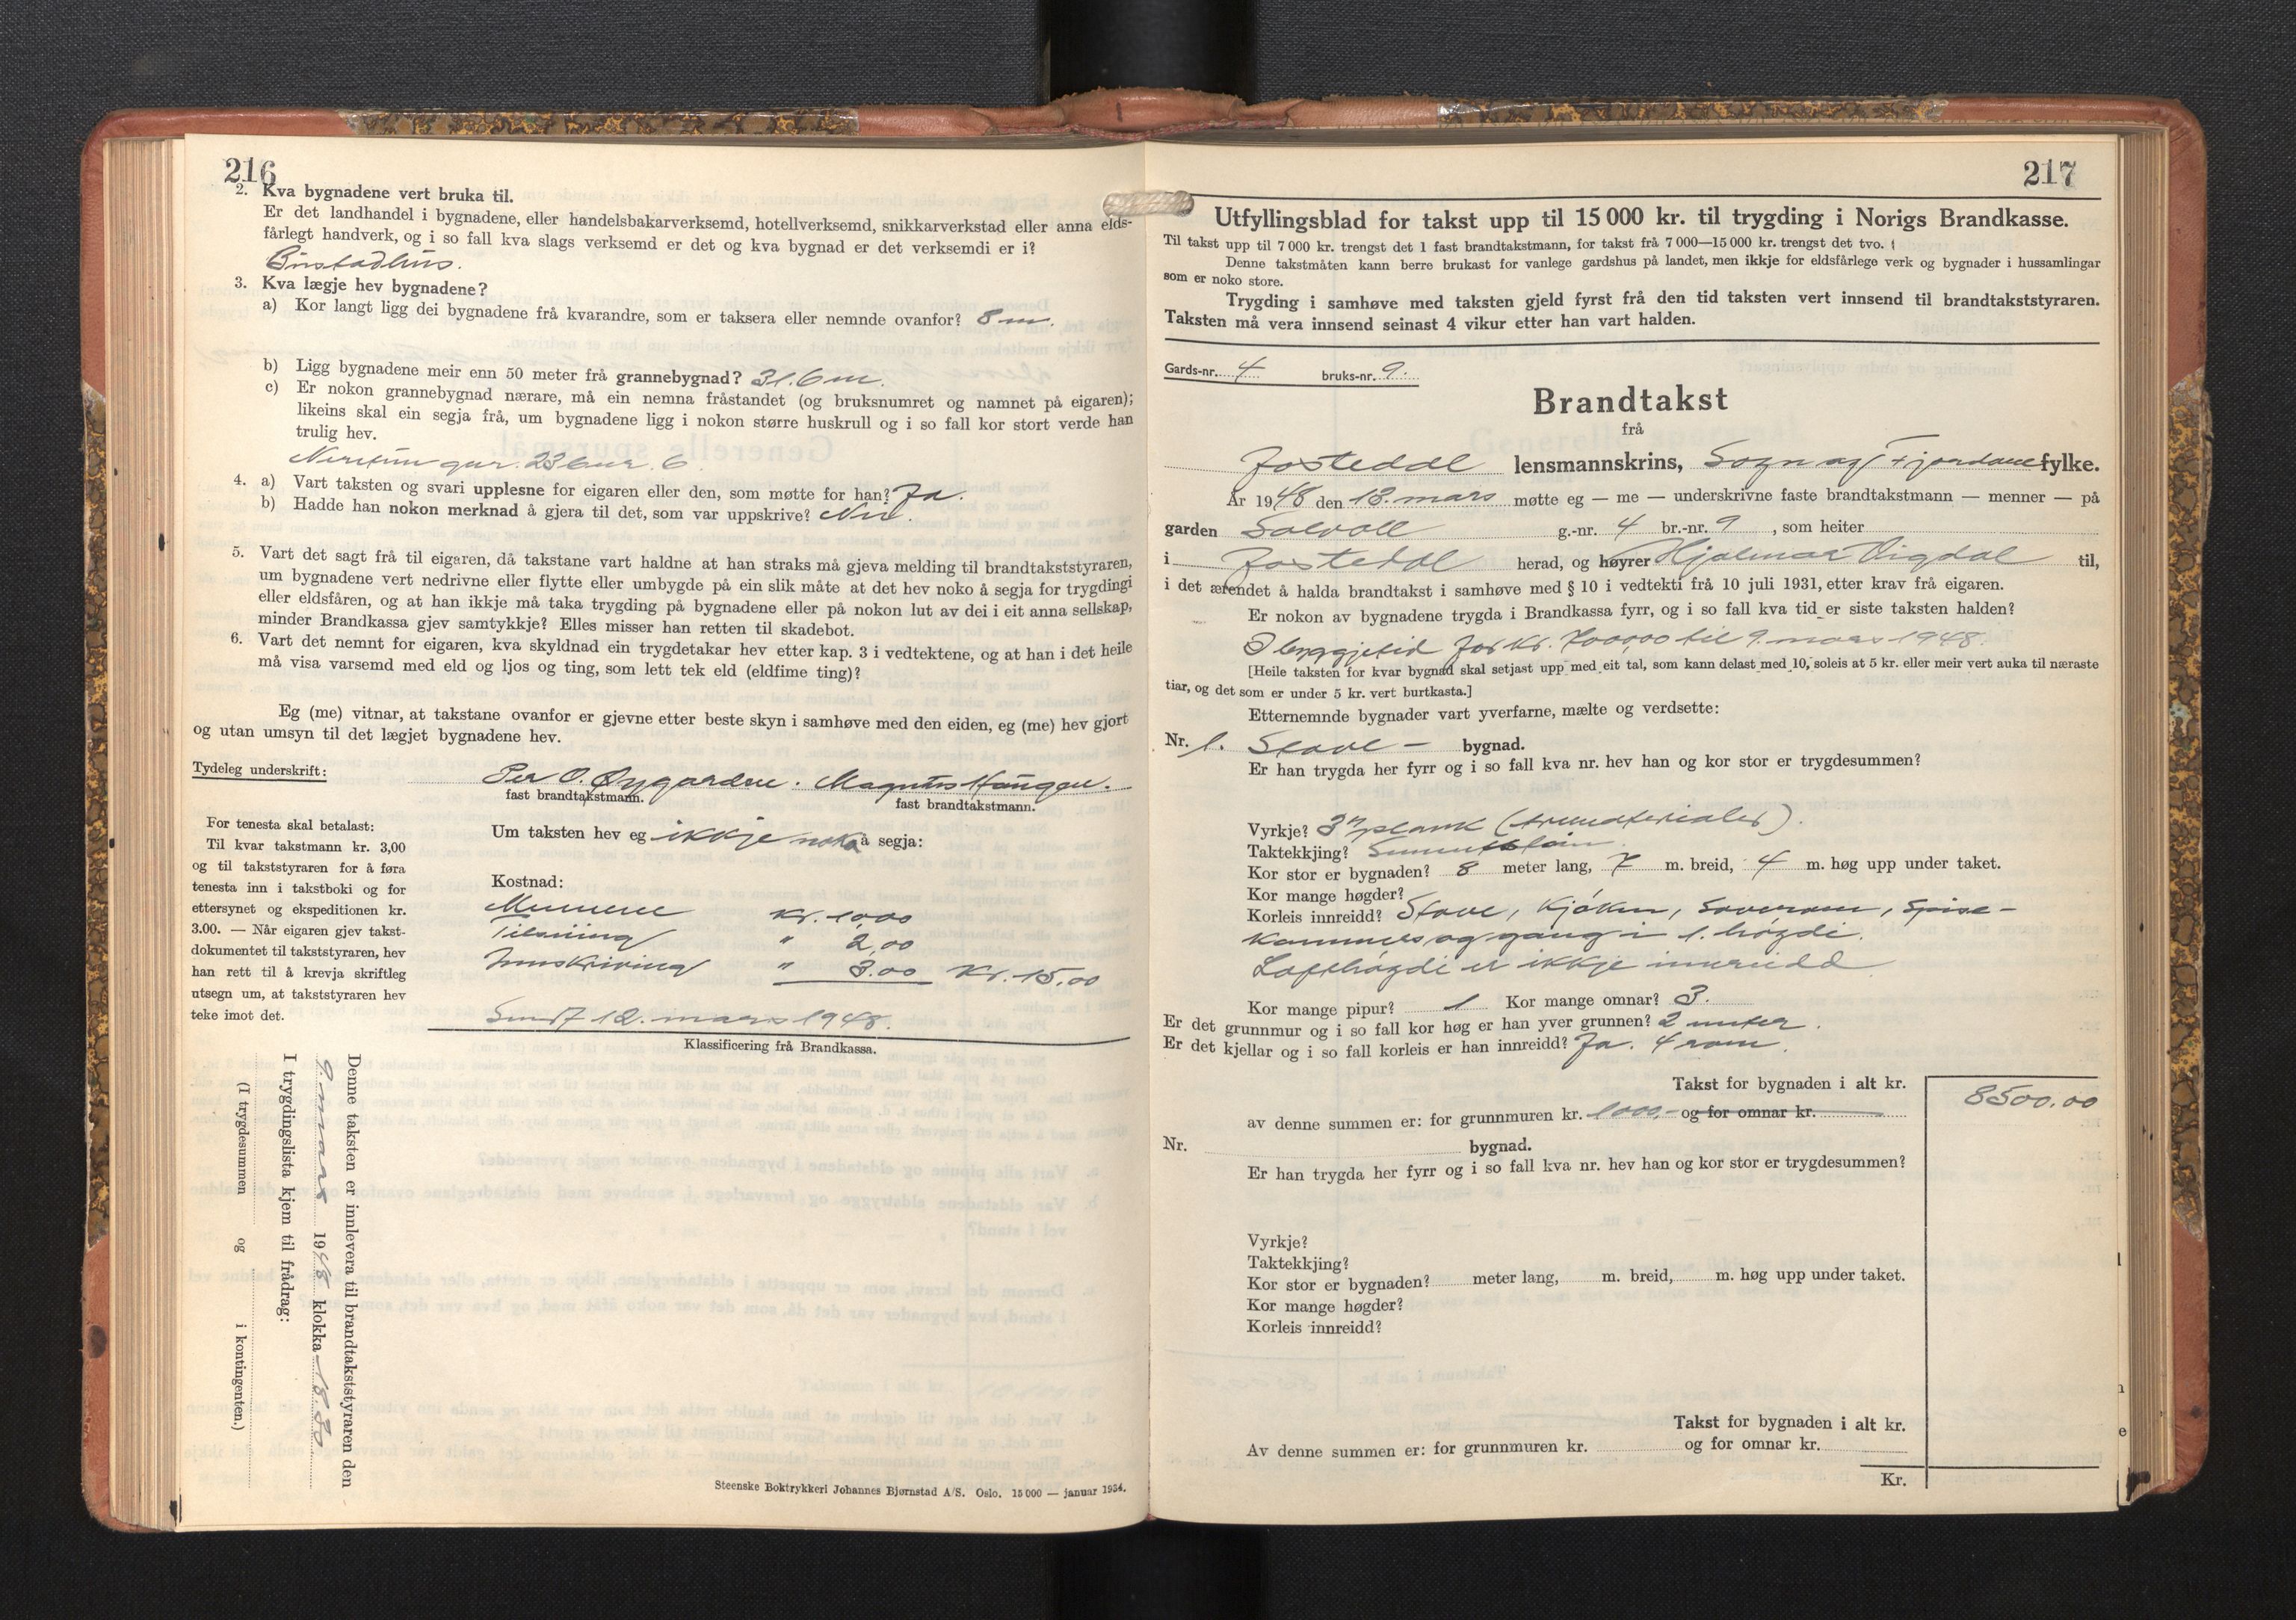 216
2. Kva bygnadene vert bruka til.
Er det landhandel i bygnadene, eller handelsbakarverksemd, hotellverksemd, snikkarverkstad eller anna elds-
fårlegt handverk, og i so fall kva slags verksemd er det og kva bygnad er det verksemdi er i?
Bustadhus.
3. Kva lægje hev bygnadene?
a) Kor langt ligg dei bygnadene frå kvarandre, som er taksera eller nemnde ovanfor? 8 m.
b) Ligg bygnadene meir enn 50 meter frå grannebygnad? 31.6 m.
c) Er nokon grannebygnad nærare, må ein nemna fråstandet (og bruksnumret og namnet på eigaren);
likeins skal ein segja frå, um bygnadene ligg i nokon større huskrull og i so fall kor stort verde han
trulig hev.
4. a) Vart taksten og svari upplesne for eigaren eller den, som møtte for han? Ja.
b) Hadde han nokon merknad å gjera til det, som var uppskrive? Nei.
5. Vart det sagt frå til eigaren, då takstane vart haldne at han straks må gjeva melding til brandtakststyraren,
um bygnadene vert nedrivne eller flytte eller umbygde på ein slik måte at det hev noko å segja for trygdingi
eller eldsfåren, og at han ikkje må taka trygding på bygnadene eller på nokon lut av dei i eit anna sellskap,
minder Brandkassa gjev samtykkje? Elles misser han retten til skadebot.
6. Vart det nemnt for eigaren, kva skyldnad ein trygdetakar hev etter kap. 3 i vedtektene, og at han i det heile
må visa varsemd med eld og ljos og ting, som lett tek eld (eldfime ting)?
Eg (me) vitnar, at takstane ovanfor er gjevne etter beste skyn i samhøve med den eiden, eg (me) hev gjort
og utan umsyn til det lægjet bygnadene hev.
Tydeleg underskrift: Per O. Øygarden. Magnus Haugen.
fast brandtakstmann. fast brandtakstmann.
For tenesta skal betalast:
Til kvar takstmann kr. 3,00
og til takststyraren for å føra
tenesta inn i takstboki og for
ettersynet og ekspeditionen kr.
3.00. — Når eigaren gjev takst-
dokumentet til takststyraren, hev
han rett til å krevja skriftleg
utsegn um, at takststyraren hev
teke imot det.
Um taksten hev eg ikkje noko å segja:
Kostnad:
Mennene kr. 10,00
" 2,00
Innskriving " 3.00 Kr. 15,00
Sendt 12. mars 1948.
Klassificering frå Brandkassa.
Denne taksten er innlevera til brandtakststyraren den
9. mars 1948 klokka 18.30
I trygdingslista kjem til frådrag:
(I trygdesummen og i kontingenten.)
Steenske Boktrykkeri Johannes Bjørnstad A/S. Oslo. 15 000 — januar 1934.
217
Utfyllingsblad for takst upp til 15 000 kr. til trygding i Norigs Brandkasse.
Til takst upp til 7 000 kr. trengst det 1 fast brandtakstmann, for takst frå 7 000—15 000 kr. trengst det tvo.
Denne takstmåten kann berre brukast for vanlege gardshus på landet, men ikkje for eldsfårlege verk og bygnader i hussamlingar
som er noko store.
Trygding i samhøve med taksten gjeld fyrst frå den tid taksten vert innsend til brandtakststyraren.
Taksten må vera innsend seinast 4 vikur etter han vart halden.
Gards-nr. 4 bruks-nr. 9.
Brandtakst
frå
Jostedal lensmannskrins, Sogn og Fjordane fylke.
År 1948 den 13. mars møtte eg — me — underskrivne faste brandtakstmann — menner — på
garden Solvoll g.-nr. 4 br.-nr. 9, som heiter
i Jostedal herad, og høyrer Hjalmar Vigdal til,
i det ærendet å halda brandtakst i samhøve med § 10 i vedtekti frå 10 juli 1931, etter krav frå eigaren.
Er nokon av bygnadene trygda i Brandkassa fyrr, og i so fall kva tid er siste taksten halden?
I byggjetid for kr. 7000,00 til 9. mars 1948.
[Heile taksten for kvar bygnad skal setjast upp med eit tal, som kann delast med 10, soleis at 5 kr. eller meir vert auka til næraste
tiar, og det som er under 5 kr. vert burtkasta.]
Etternemnde bygnader vart yverfarne, mælte og verdsette:
Nr. 1. Stove- bygnad.
Er han trygda her fyrr og i so fall kva nr. hev han og kor stor er trygdesummen?
Vyrkje? 3" plank
Taktekkjing?
Kor stor er bygnaden? 8 meter lang, 7 m. breid, 4 m. høg upp under taket.
Kor mange høgder?
Korleis innreidd? Stove, kjøken, soverom, spise-
kammers og gang i 1. høgdi.
Lofthøgdi er ikkje innreidd
Kor mange pipur? 1 Kor mange omnar? 3.
Er det grunnmur og i so fall kor høg er han yver grunnen? 2 meter.
Er det kjellar og i so fall korleis er han innreidd? Ja. 4 rom.
Takst for bygnaden i alt kr. 8500.00
av denne summen er: for grunnmuren kr. 1000,- og for omnar kr.
Nr. bygnad.
Er han trygda her fyrr og i so fall kva nr. hev han og kor stor er trygdesummen?
Vyrkje?
Taktekkjing?
Kor stor er bygnaden? meter lang, m. breid, m. høg upp under taket.
Kor mange høgder?
Korleis innreidd?
Takst for bygnaden i alt kr.
Av denne summen er: for grunnmuren kr. og for omnar kr.
Kr.